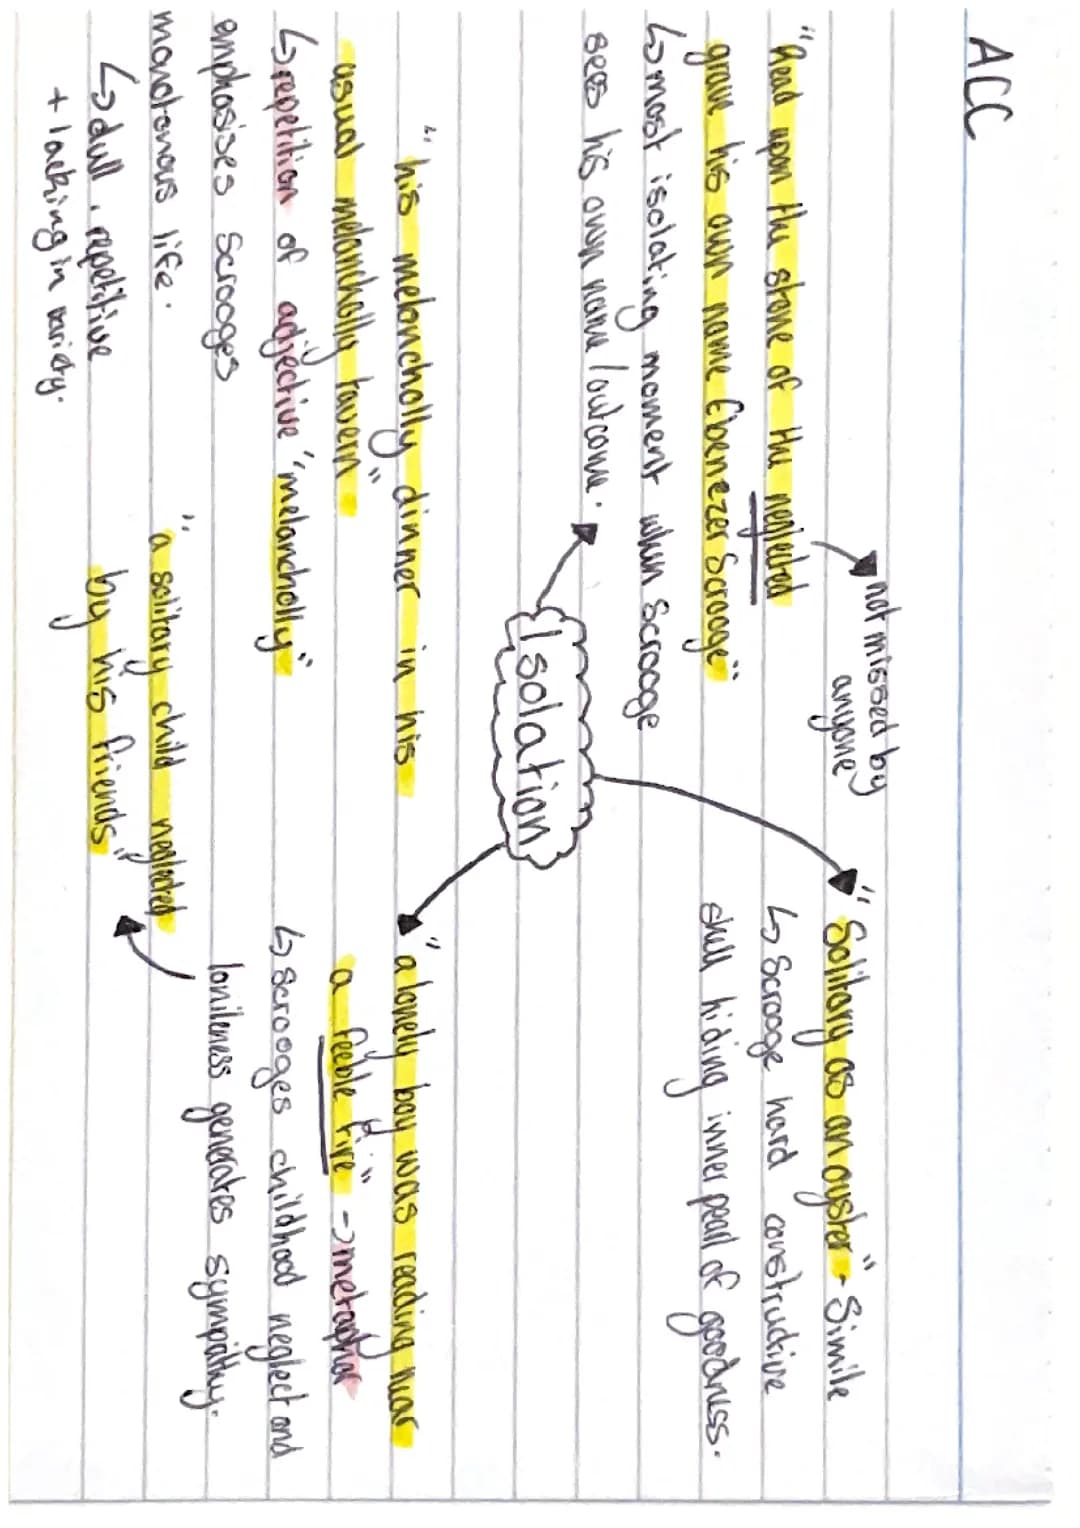 ACC
not missed by
anyone
"Read upon the stone of the neglected
grave his own name Ebenezer Scrooge"
↳ most isolating moment when Scrooge
sees his own name / outcome.
"Solitary as an oyster" - Simile
↳ Scrooge hard constructive
shell hiding inner pearl of goodness.
Isolation
"his meloncholly dinner in his
usual meloncholly tavern"
↳ repetition of adjective "meloncholly"
emphasises Scrooges
monotonous life.
↳ dull, repetitive
+ lacking in variety.
"a lonely boy was reading near
a feeble fire" -> metaphor
↳ Scrooges childhood neglect and
lonileness generates sympathy.
"a solitary child neglected
by his friends"